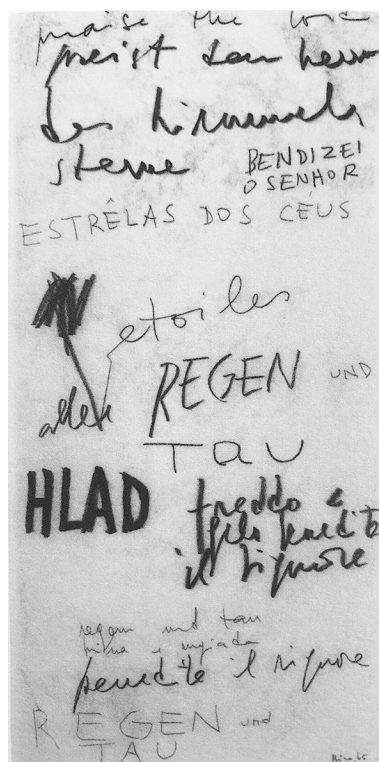 praise the lord
preist den herrn
des himmels
sterne
BENDIZEI
O SENHOR
ESTRÊLAS DOS CEUS
etoiles
REGEN UND
TAU
HLAD
freddo e
gelo benedite
il signore
regen und tau
benedite il signore
REGEN und
TAU